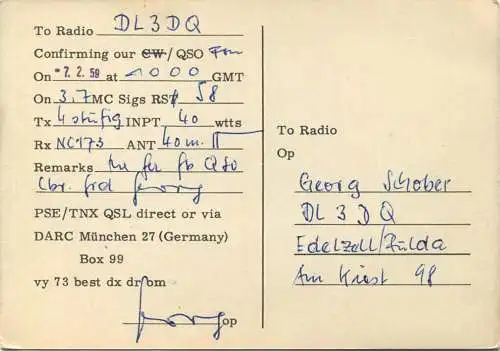 To Radio DL3DQ
Confirming our CW/QSO Fon
On *7. 2. 59 at 1000 GMT
On 3,7 MC Sigs RST 58
Tx 4 stufig INPT 40 wtts
Rx NC173 ANT 40 m
Remarks fer fb QSO
Cbr. frd Georg
PSE/TNX QSL direct or via
DARC München 27 (Germany)
Box 99
vy 73 best dx dr om
Georg op
To Radio
Op
Georg Schober
DL3DQ
Edelzell/Fulda
Am Kiest 98